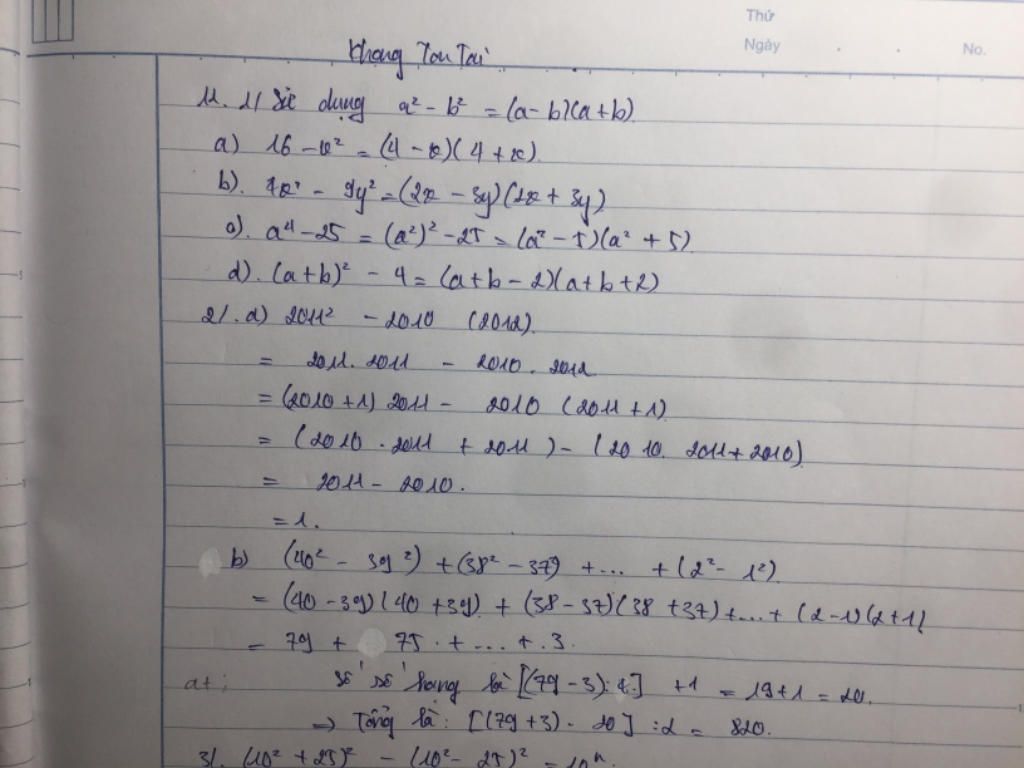 Thứ
Ngày . . No.
Khang Tan Tai
11. 1/ Sử dụng a² - b² = (a - b)(a + b)
a) 16 - x² = (4 - x)(4 + x).
b). 4x² - 9y² = (2x - 3y)(2x + 3y)
c). a⁴ - 25 = (a²)² - 25 = (a² - 5)(a² + 5)
d). (a + b)² - 4 = (a + b - 2)(a + b + 2)
2/. a) 2011² - 2010 (2012).
= 2011. 2011 - 2010 . 2012
= (2010 + 1) 2011 - 2010 (2011 + 1)
= (2010 . 2011 + 2011) - (2010. 2011 + 2010).
= 2011 - 2010.
= 1.
b) (40² - 39²) + (38² - 37²) + ... + (2² - 1²).
= (40 - 39)(40 + 39) + (38 - 37)(38 + 37) + ... + (2 - 1)(2 + 1)
= 79 + 75 . + ... + . 3.
số số hạng là [(79 - 3) : 4] + 1 = 19 + 1 = 20.
⇒ Tổng là: [(79 + 3) . 20] : 2 = 820.
3/. (10² + 25)² - (10² - 25)² = 10ⁿ.